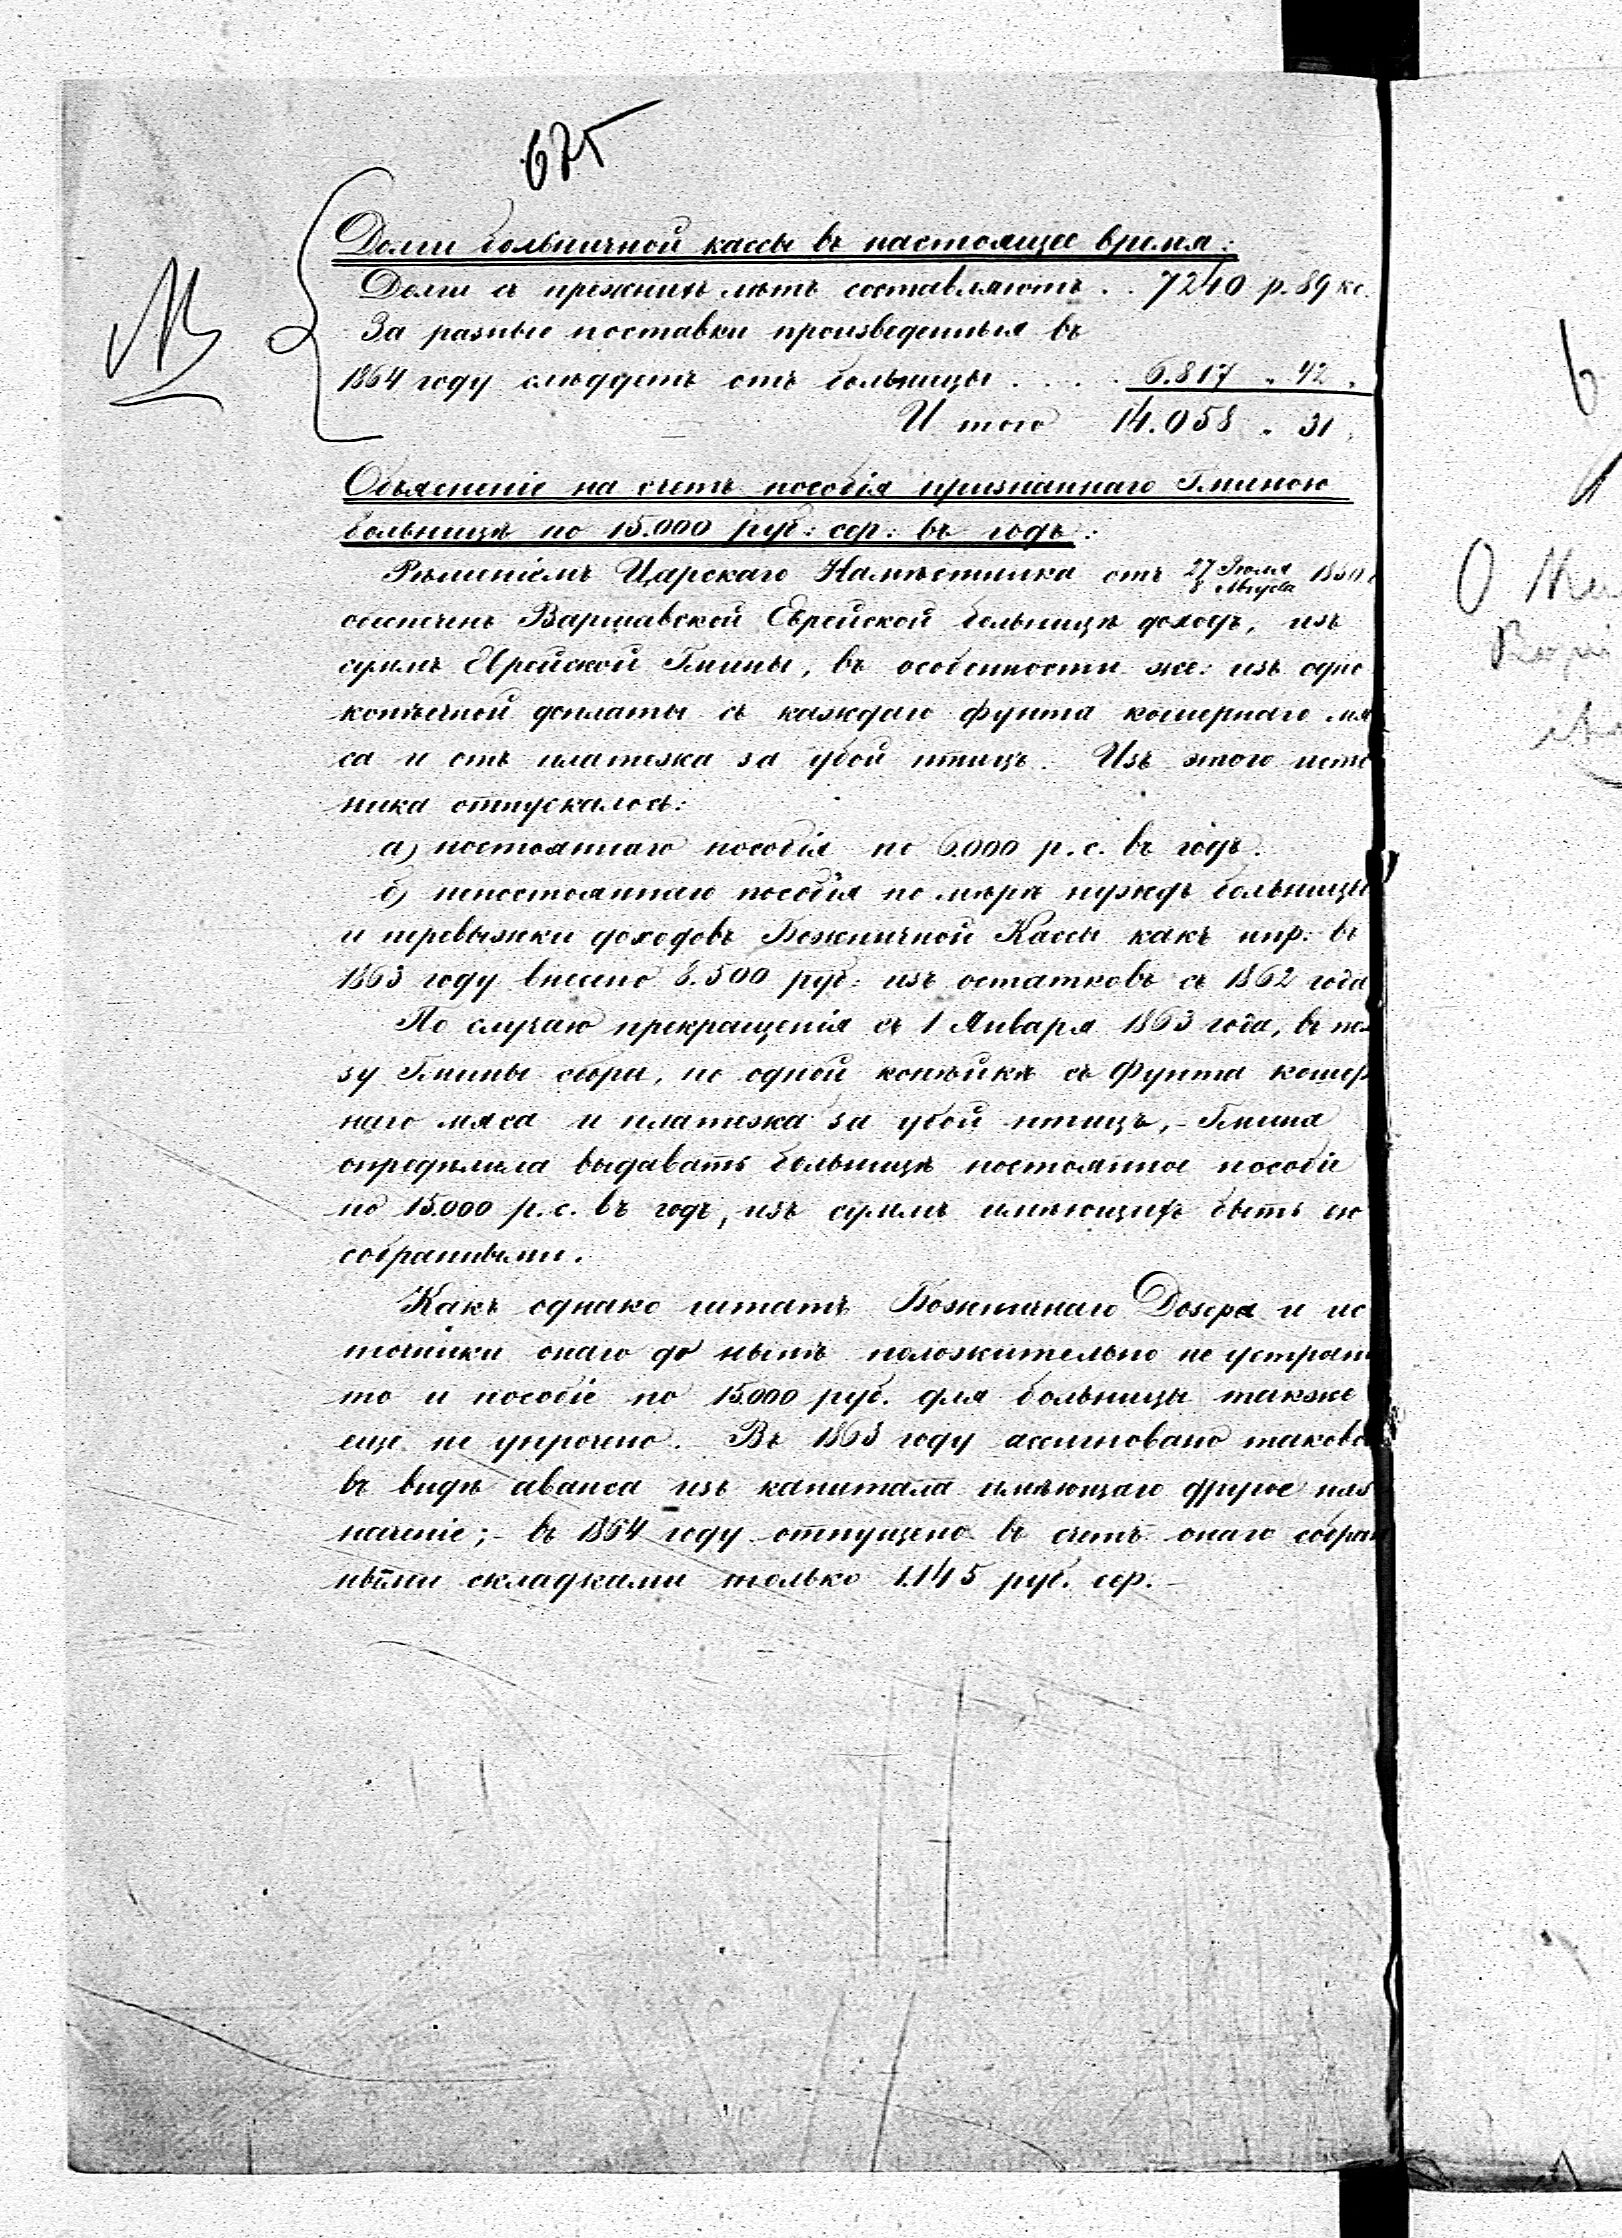 675
Долги больничной кассы въ настоящее время:
Долги съ прежнихъ лѣтъ составляютъ . . 7240 р. 89 ко.
За разные поставки произведенныя въ
1864 году слѣдуетъ отъ больницы . . . . 6.817 " 42 "
И того 14.058 " 31 "
Объясненіе на счетъ пособія признаннаго Гминою
больницѣ по 15.000 руб: сер: въ годъ:
Рѣшеніемъ Царскаго Намѣстника отъ 27 Іюля / 8 Августа 1850
обезпеченъ Варшавской Еврейской больницѣ доходъ, изъ
суммъ Еврейской Гмины, въ особенности же: изъ одно
копѣечной доплаты съ каждаго фунта кошернаго мя
са и отъ платежа за убой птицъ. Изъ этого исто
ника отпускалось:
а) постояннаго пособія по 6.000 р. с. въ годъ.
б) непостояннаго пособія по мѣрѣ нуждъ больницы
и перевыжки доходовъ Божничной Кассы какъ нпр: въ
1863 году внесено 8.500 руб: изъ остатковъ съ 1862 года
По случаю прекращенія съ 1 Января 1863 года, въ пол
зу Гмины сбора, по одной копѣйкѣ съ Фунта кошер
наго мяса и платежа за убой птицъ, - Гмина
опредѣлила выдавать больницѣ постоянное пособіе
по 15.000 р. с. въ годъ, изъ суммъ имѣющихъ быть ею
собранными.
Какъ однако штатъ Божничнаго Дозора и ис
точники онаго до нынѣ положительно не устроены
то и пособіе по 15.000 руб. для больницы также
еще не упрочено. Въ 1863 году ассигновано таково
въ видѣ аванса изъ капитала имѣющаго другое наз
наченіе; - въ 1864 году отпущено въ счетъ онаго собран
ными складками только 1.145 руб. сер.